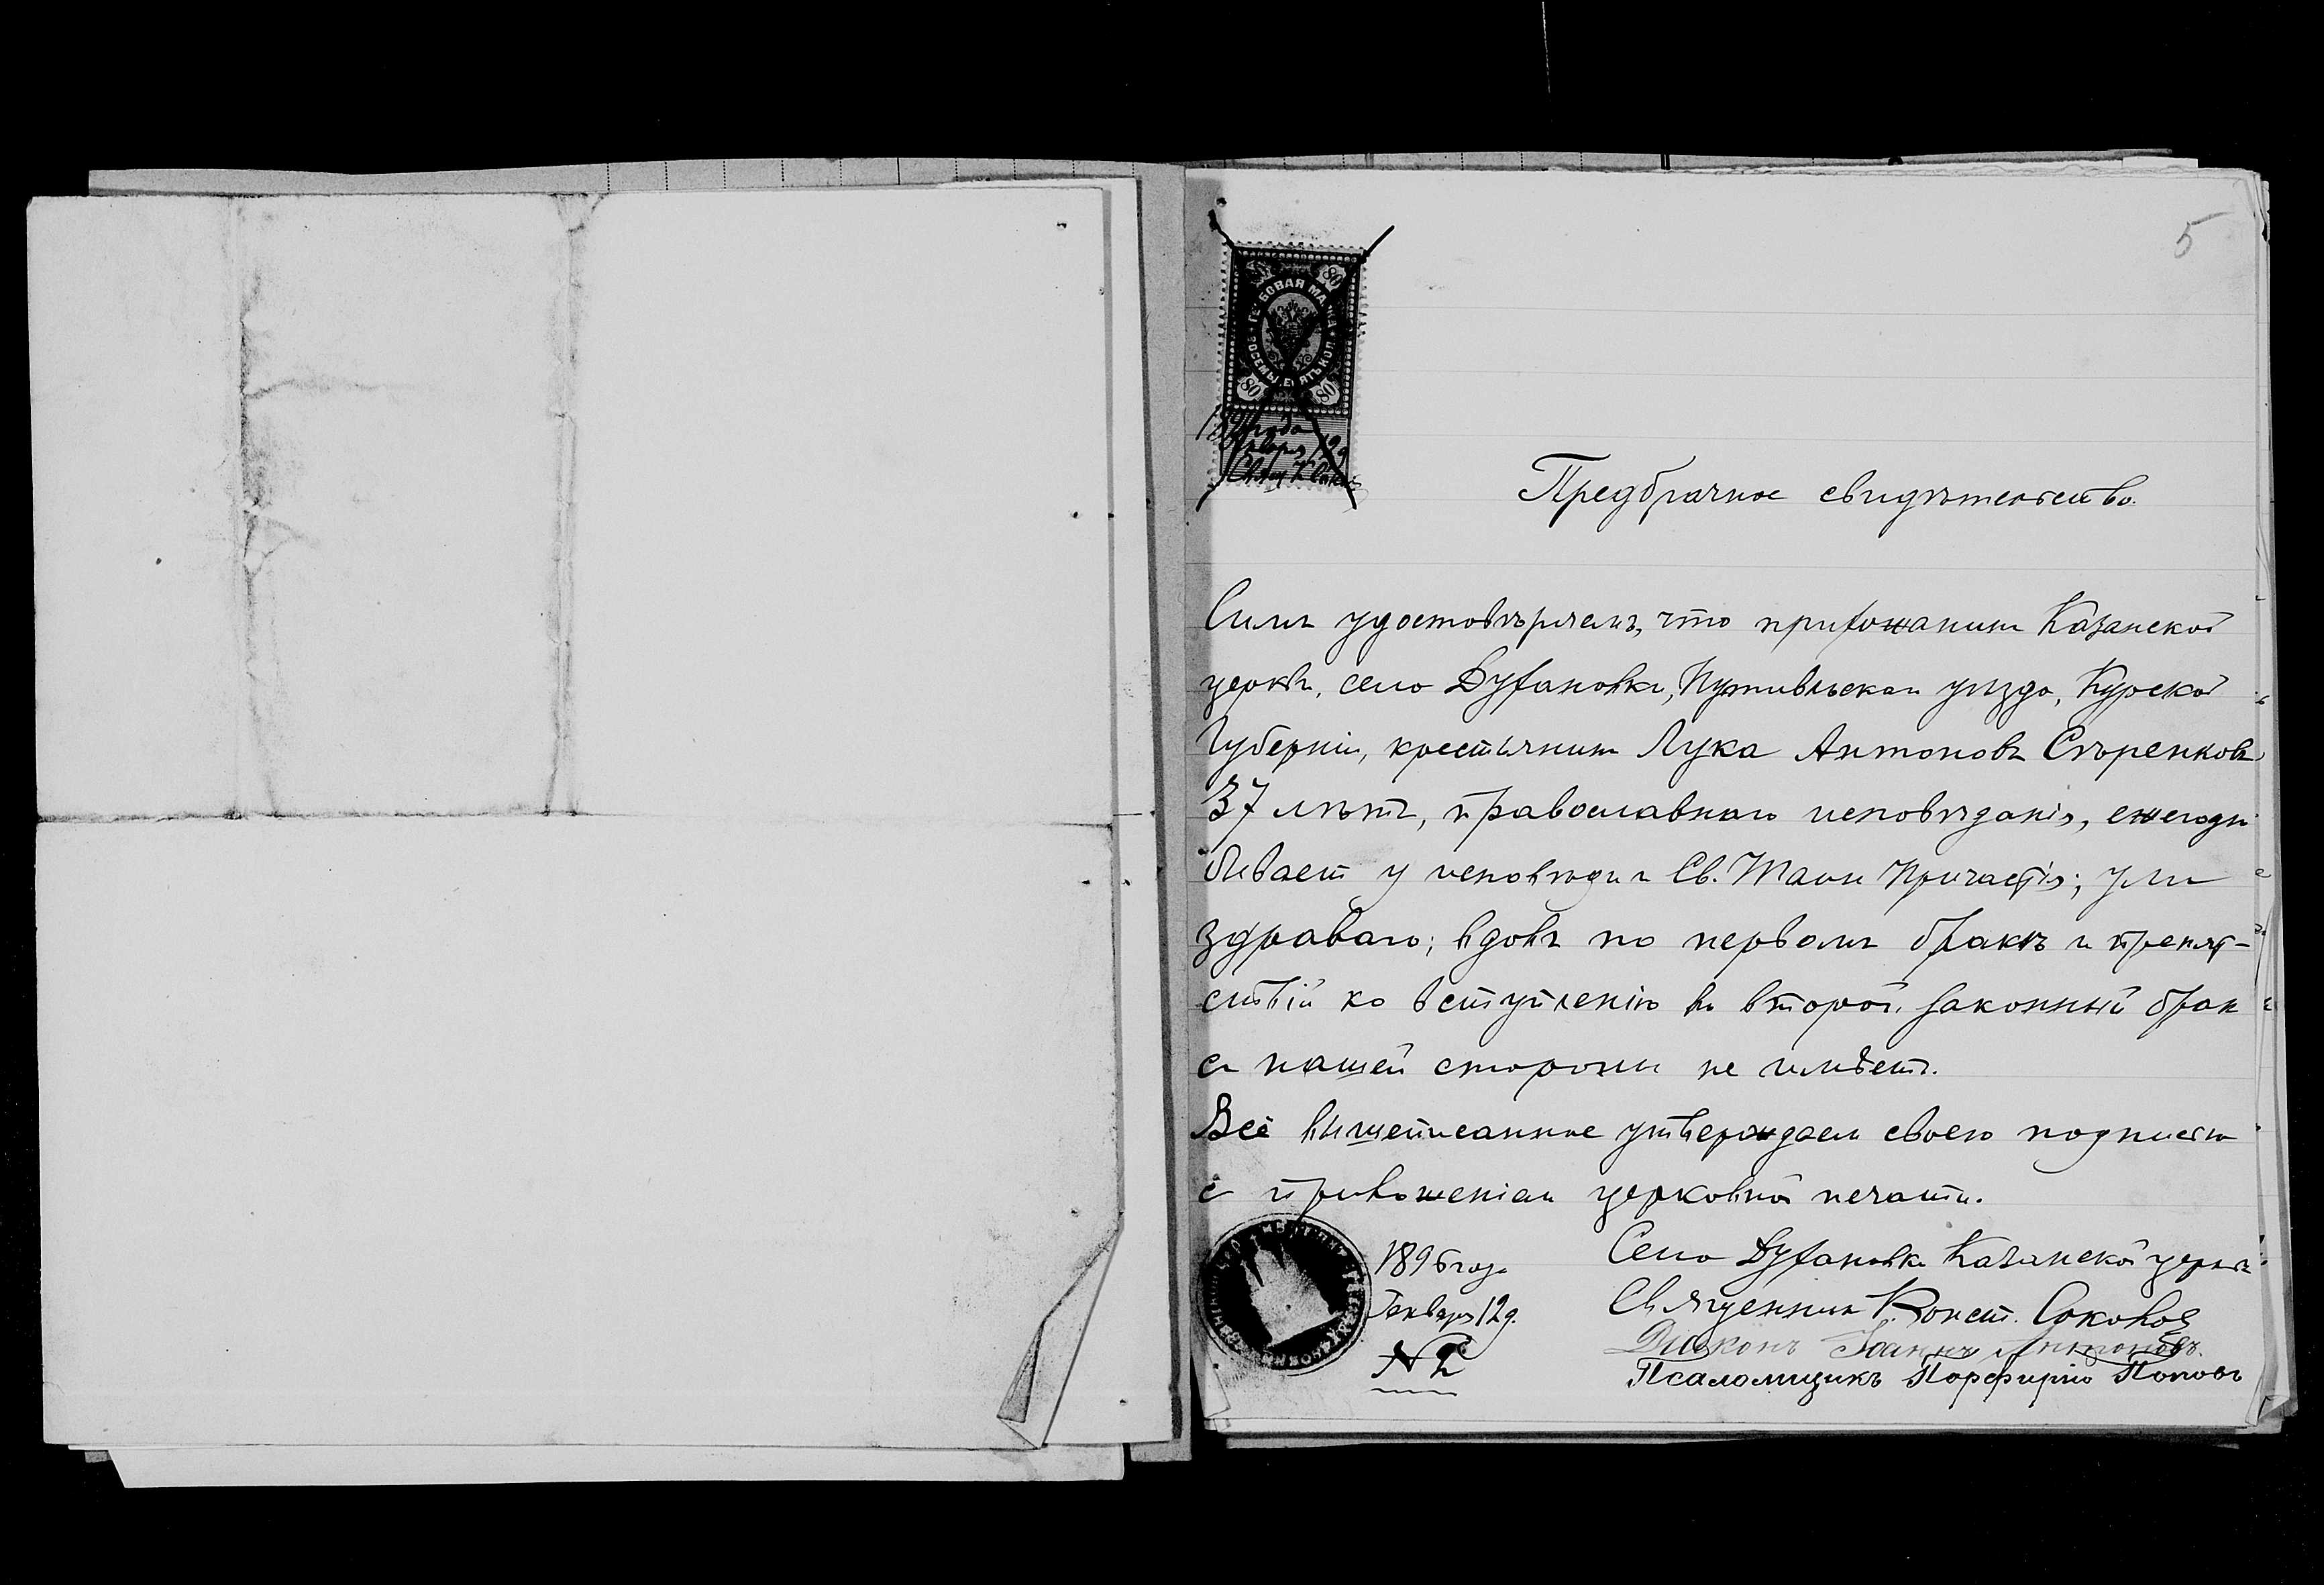 5
ГЕРБОВАЯ МАРКА
ВОСЕМЬДЕСЯТЪ КОП.
80
80 80
Предбрачное свидѣтельство.
Симъ удостовѣряемъ, что прихожанинъ Казанской
церкви, село Духановки, Путивльскаго уѣзда, Курской
Губерніи, крестьянинъ Лука Антоновъ Сѣренковъ
37 лѣтъ, православнаго исповѣданія, ежегодно
бываетъ у исповѣди и Св. Таинъ Причастія; ума
здраваго; вдовъ по первомъ бракѣ и препят-
ствій ко вступленію во второй законный бракъ
съ нашей стороны не имѣетъ.
Всё вышеписанное утверждаемъ своею подписью
съ приложеніемъ церковной печати.
1896 года
Генваря 12 д.
№ 2
Село Духановка Казанской церкви
Священникъ Конст. Соколовъ
Діаконъ Іоаннъ Антоновъ.
Псаломщикъ Порфирій Поповъ